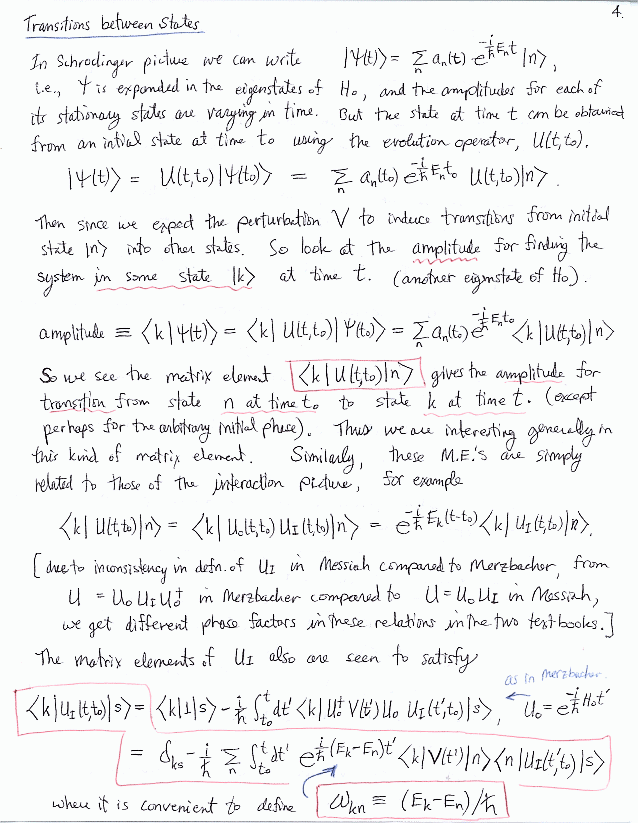 4.
Transitions between States
In Schrodinger picture we can write |Ψ(t)⟩ = Σ_n a_n(t) e^{-i/ħ E_n t} |n⟩,
i.e., Ψ is expanded in the eigenstates of H₀, and the amplitudes for each of
its stationary states are varying in time. But the state at time t can be obtained
from an intial state at time t₀ using the evolution operator, U(t,t₀).
|Ψ(t)⟩ = U(t,t₀)|Ψ(t₀)⟩ = Σ_n a_n(t₀) e^{-i/ħ E_n t₀} U(t,t₀)|n⟩.
Then since we expect the perturbation V to induce transitions from initial
state |n⟩ into other states. So look at the amplitude for finding the
system in some state |k⟩ at time t. (another eigenstate of H₀).
amplitude ≡ ⟨k|Ψ(t)⟩ = ⟨k|U(t,t₀)|Ψ(t₀)⟩ = Σ_n a_n(t₀) e^{-i/ħ E_n t₀} ⟨k|U(t,t₀)|n⟩
So we see the matrix element ⟨k|U(t,t₀)|n⟩ gives the amplitude for
transition from state n at time t₀ to state k at time t. (except
perhaps for the arbitrary initial phase). Thus we are interesting generally in
this kind of matrix element. Similarly, these M.E.'s are simply
related to those of the interaction picture, for example
⟨k|U(t,t₀)|n⟩ = ⟨k|U₀(t,t₀) U_I(t,t₀)|n⟩ = e^{-i/ħ E_k(t-t₀)} ⟨k|U_I(t,t₀)|n⟩.
[due to inconsistency in defn. of U_I in Messiah compared to Merzbacher, from
U = U₀ U_I U₀† in Merzbacher compared to U = U₀ U_I in Messiah,
we get different phase factors in these relations in the two textbooks.]
The matrix elements of U_I also are seen to satisfy
as in Merzbacher
⟨k|U_I(t,t₀)|s⟩ = ⟨k|1|s⟩ - i/ħ ∫_{t₀}^{t} dt' ⟨k|U₀† V(t') U₀ U_I(t',t₀)|s⟩, U₀ = e^{-i/ħ H₀t'}
= δ_ks - i/ħ Σ_n ∫_{t₀}^{t} dt' e^{i/ħ (E_k-E_n)t'} ⟨k|V(t')|n⟩⟨n|U_I(t',t₀)|s⟩
where it is convenient to define ω_kn ≡ (E_k-E_n)/ħ